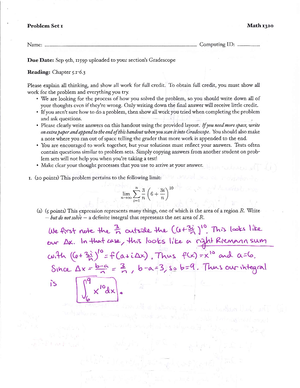 Problem Set 1 Math 1320
Name: Computing ID:
Due Date: Sep 9th, 11:59p uploaded to your section's Gradescope
Reading: Chapter 5.1-6.3
Please explain all thinking, and show all work for full credit. To obtain full credit, you must show all
work for the problem and everything you try.
• We are looking for the process of how you solved the problem, so you should write down all of
your thoughts even if they're wrong. Only writing down the final answer will receive little credit.
• If you aren't sure how to do a problem, then show all work you tried when completing the problem
and ask questions.
• Please clearly write on this handout using the provided layout. If you need more space, write
on extra paper and append to the end of this handout when you scan it into Gradescope. You should also make
a note where you ran out of space telling the grader that more work is appended to the end.
• You are encouraged to work together, but your solutions must reflect your answers. Tests often
contain questions similar to problem sets. Simply copying answers from another student on prob-
lem sets will not help you when you're taking a test!
• Make clear your thought processes that you use to arrive at your answer.
1. (10 points) This problem pertains to the following limit:
lim n→∞ n Σ i=1 3/n (6 + 3i/n)^10
(a) (5 points) This expression represents many things, one of which is the area of a region R. Write
– but do not solve – a definite integral that represents the set area of R.
We first note the 3/n outside the (6+3i/n)^10. This looks like
our Δx. In that case, this looks like a right Riemann sum
with (6+3i/n)^10 = f(a+iΔx). Thus f(x)=x^10 and a=6.
Since Δx = b-a/n = 3/n, b-a=3, so b=9. Thus our integral
is ∫_6^9 x^10 dx.